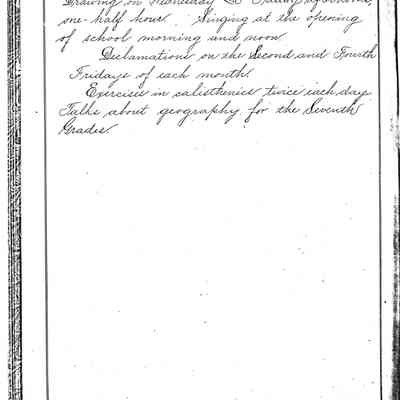 Drawing on Wednesday & Friday afternoons,
one-half hour. Singing at the opening
of school morning and noon
Declamations on the Second and Fourth
Fridays of each month.
Exercises in calisthenics twice each day
Talks about geography for the Seventh
Grades.